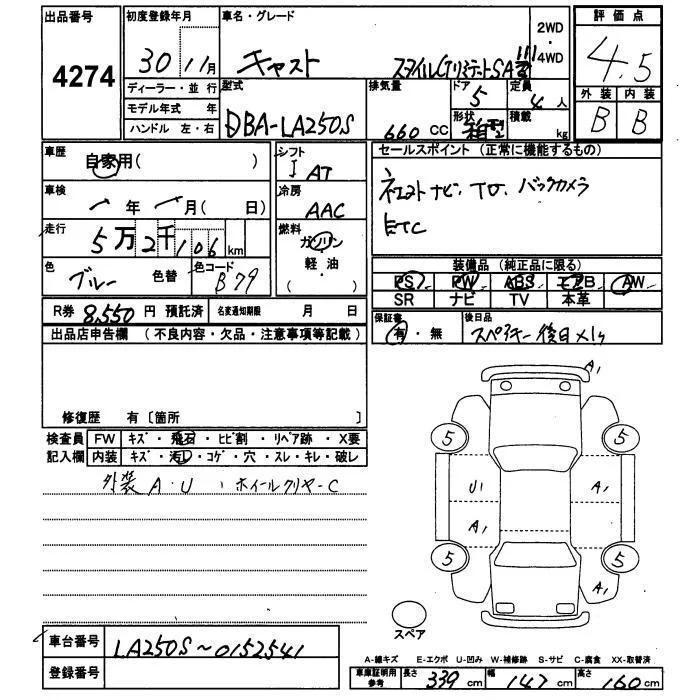 出品番号 4274
初度登録年月 30年 11月
車名・グレード キャスト スタイルGリミテッドSAⅢ
2WD・4WD
評価点 4.5
外装 B 内装 B
ディーラー・並行
モデル年式 年
ハンドル 左・右
型式 DBA-LA250S
排気量 660 CC
ドア 5
定員 4人
形状 箱型
積載 kg
車歴 自家用( )
シフト I AT
車検 年 月( 日)
冷房 AAC
走行 5万2千106km
燃料 ガソリン 軽油
色 ブルー 色替
色コード B79
セールスポイント (正常に機能するもの)
純正ナビ. TV. バックカメラ
ETC
装備品 (純正品に限る)
PS PW ABS エアB AW
SR ナビ TV 本革
R券 8,550円 預託済
名変通知期限 月 日
保証書 有・無
後日品 スペアキー後日メリ
出品店申告欄 (不良内容・欠品・注意事項等記載)
修復歴 有〔箇所 〕
検査員記入欄
FW キズ・飛石・ヒビ割・リペア跡・X要
内装 キズ・汚レ・コゲ・穴・スレ・キレ・破レ
外装 A・U 、ホイールクリヤーC
A1
5 5
U1 A1
A1
5 5
A1
スペア
車台番号 LA250S~0152541
登録番号
A-線キズ E-エクボ U-凹み W-補修跡 S-サビ C-腐食 XX-取替済
車庫証明用参考 長さ 339 cm 幅 147 cm 高さ 160 cm